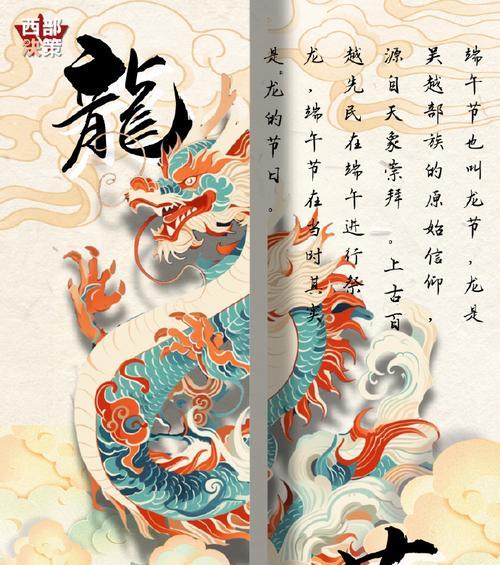 西部
决策
龍
端午节也叫龙节,龙是
吴越部族的原始信仰,
源自天象崇拜。上古百
越先民在端午进行祭
龙,端午节在当时其实
是“龙的节日。